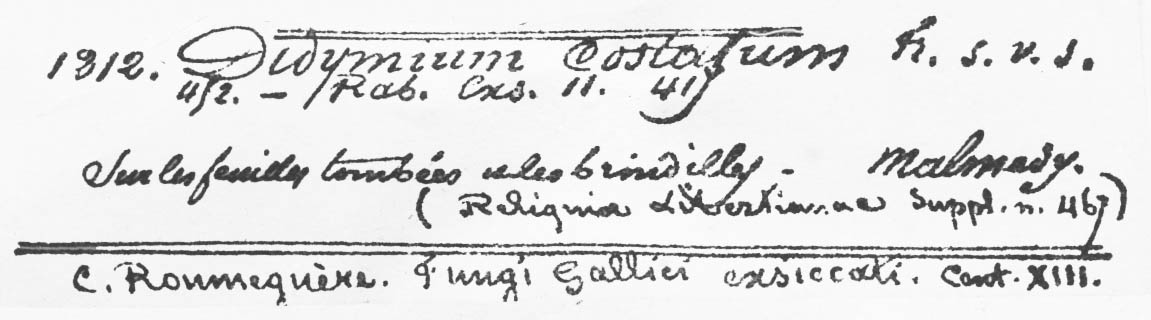 1312. Didymium costatum Fr. s. v. s.
4/2. — Rab. Exs. 11. 417
Sur les feuilles tombées et les brindilles. Malmedy.
(Reliquiæ Libertianae Suppl. n. 467)
C. Roumeguère. Fungi Gallici exsiccati. Cent. XIII.